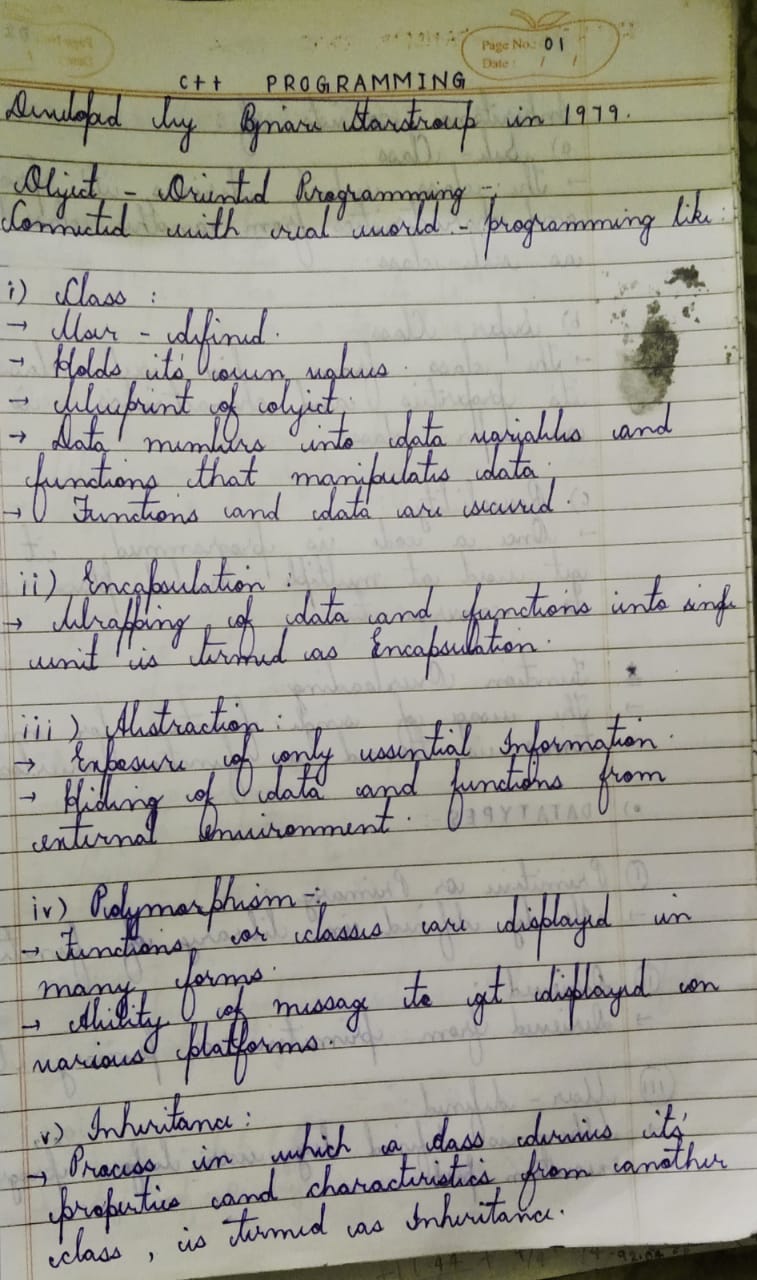 Page No: 01
Date: / /
C++ PROGRAMMING
Developed by Bjnare Starstroup in 1979.
Object - Oriented Programming -
Connected with real world - programming like :
i) Class :
→ User - defined.
→ Holds its' own values.
→ Blueprint of object.
→ Data members into data variables and
functions that manipulates data.
→ Functions and data are secured.
ii) Encapsulation :
→ Wrapping of data and functions into single
unit is termed as Encapsulation.
iii) Abstraction :
→ Exposure of only essential Information.
→ Hiding of data and functions from
external Environment.
iv) Polymorphism -:
→ Functions or classes are displayed in
many forms.
→ Ability of message to get displayed on
various platforms.
v) Inheritance :
→ Process in which a class derives its'
properties and characteristics from another
class, is termed as Inheritance.